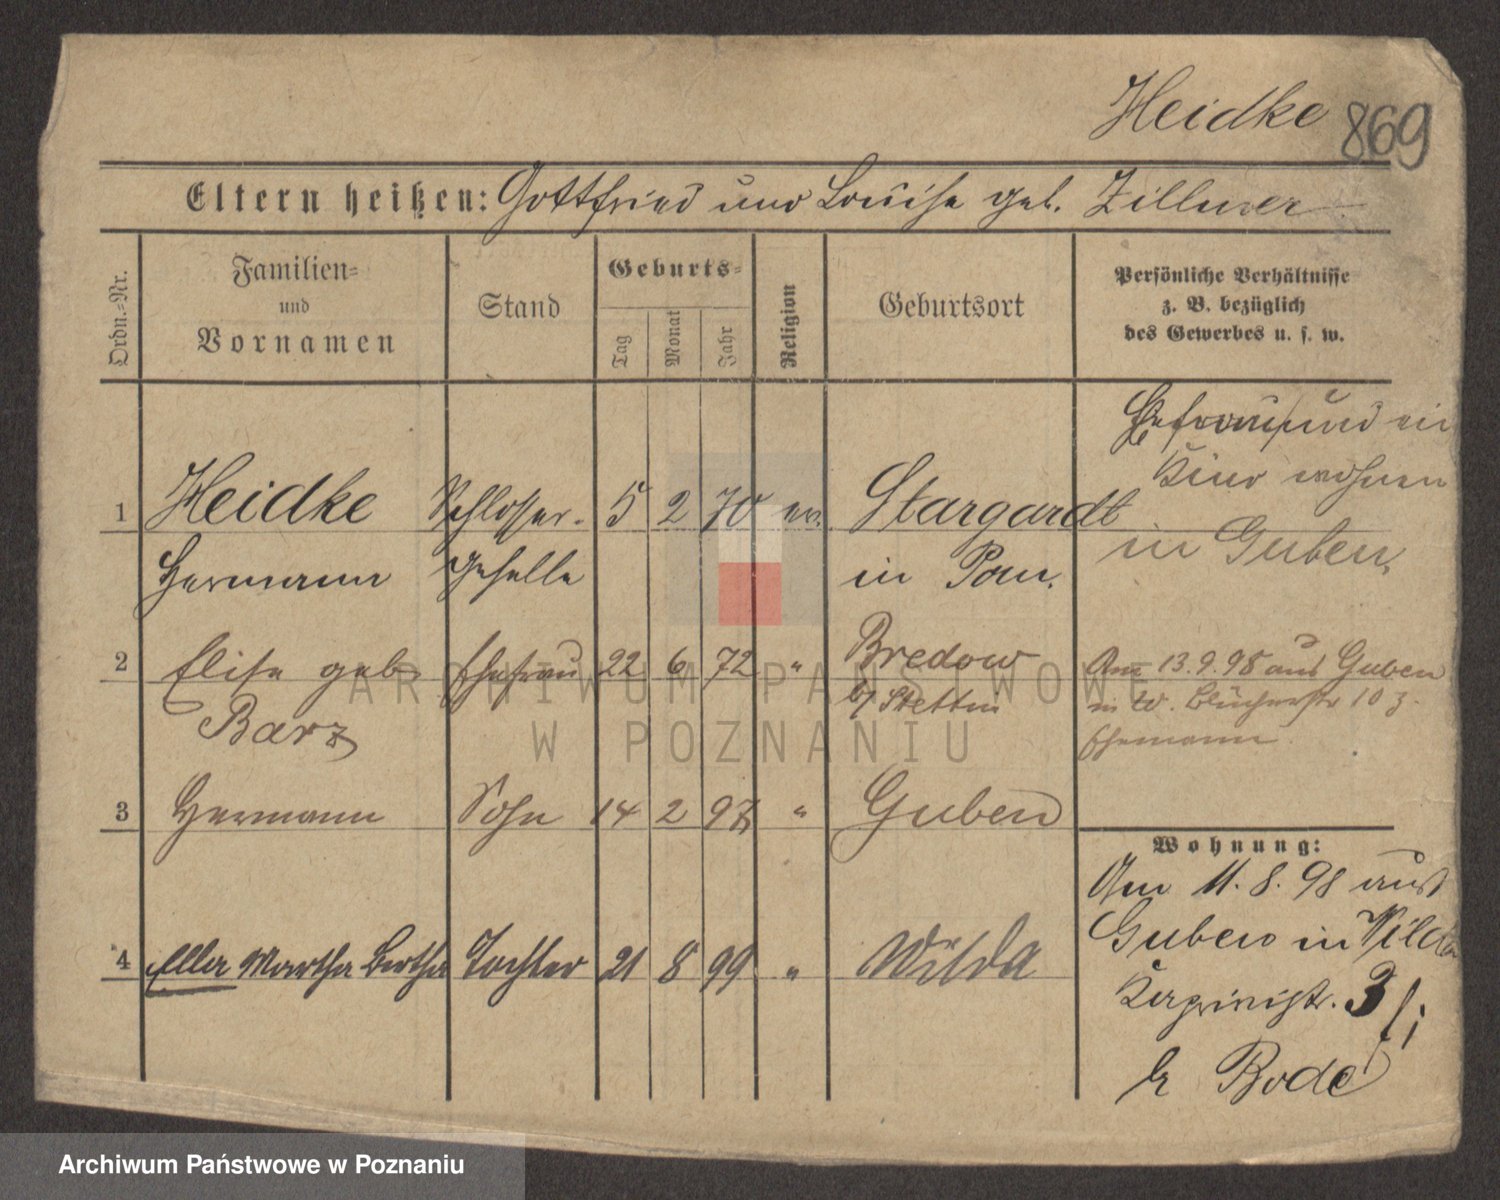 Heidke 869
Eltern heißen: Gottfried und Louise geb. Zillmer
Ordn.-Nr.
Familien-
und
Vornamen
Stand
Geburts-
Tag
Monat
Jahr
Religion
Geburtsort
Persönliche Verhältnisse
z. B. bezüglich
des Gewerbes u. s. w.
Ehefrau und ein
Kind wohnen
in Guben.
1 Heidke Schlosser- 5 2 70 ev. Stargardt
Hermann geselle in Pom.
2 Elise geb. Ehefrau 22 6 72 " Bredow
Barz b/ Stettin
Am 13.9.98 aus Guben
in W. Blücherstr 10 z.
Ehemann
3 Hermann Sohn 14 2 97 " Guben
4 Ella Martha Bertha Tochter 21 8 99 " Wilda
Wohnung:
Am 11.8.98 aus
Guben in Wilda
3
b Bode
ARCHIWUM PAŃSTWOWE
W POZNANIU
Archiwum Państwowe w Poznaniu